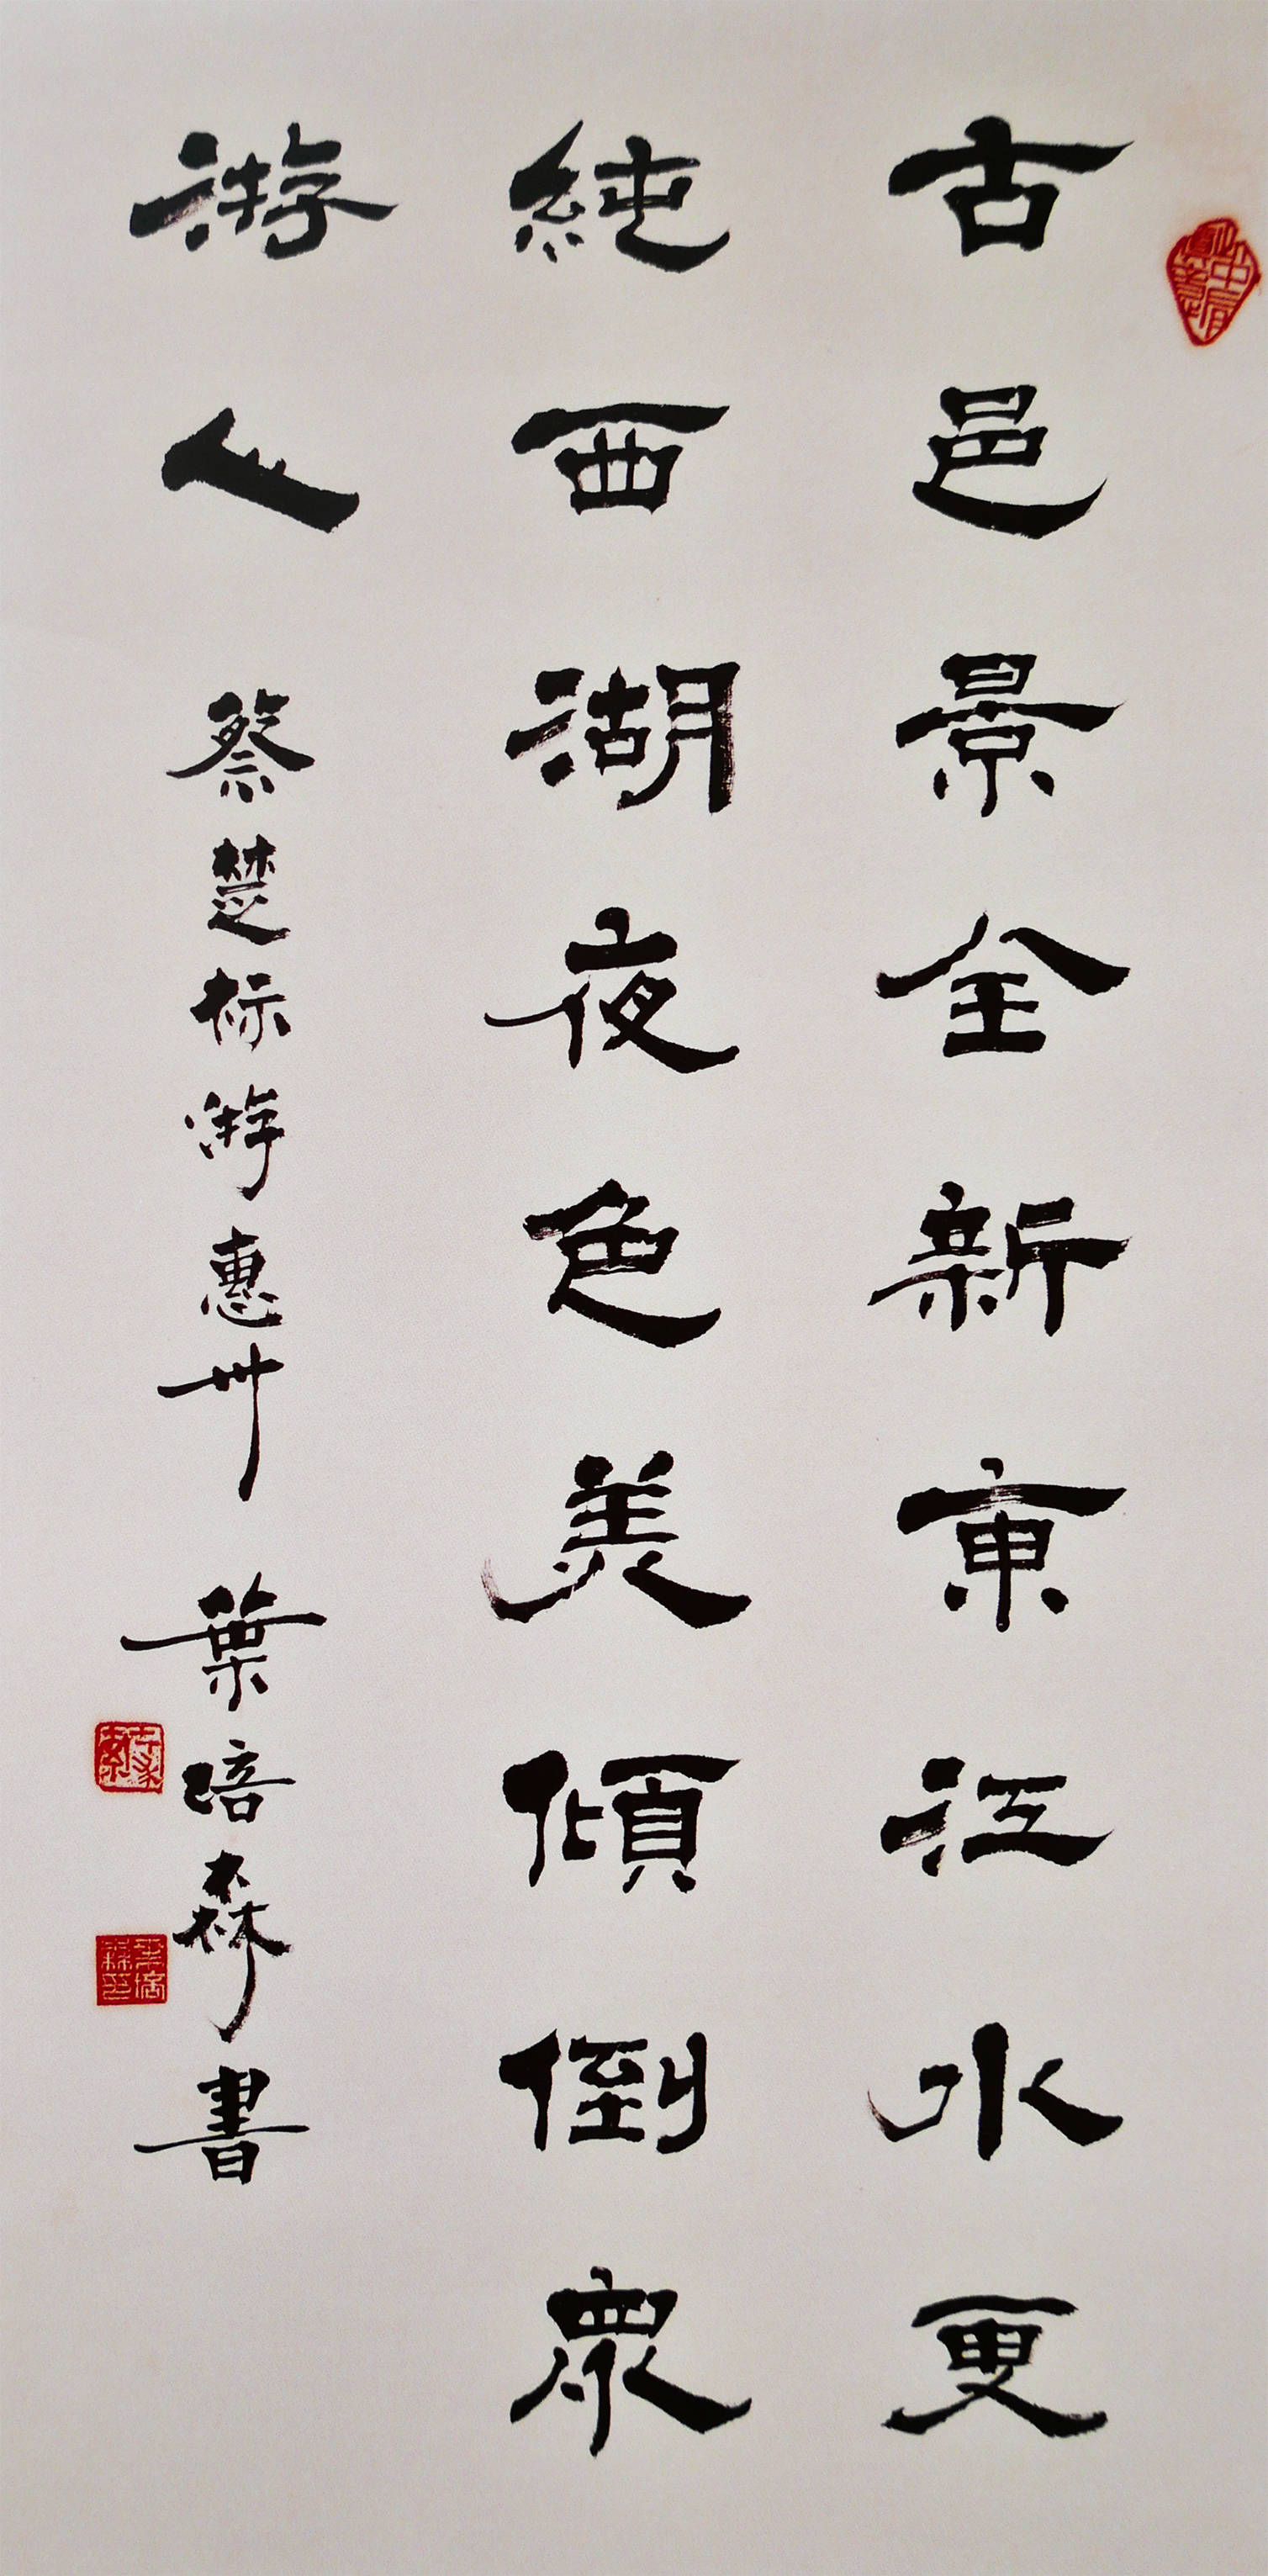 古邑景全新東江水更
純西湖夜色美傾倒眾
游人
蔡楚标游惠州
葉培森書